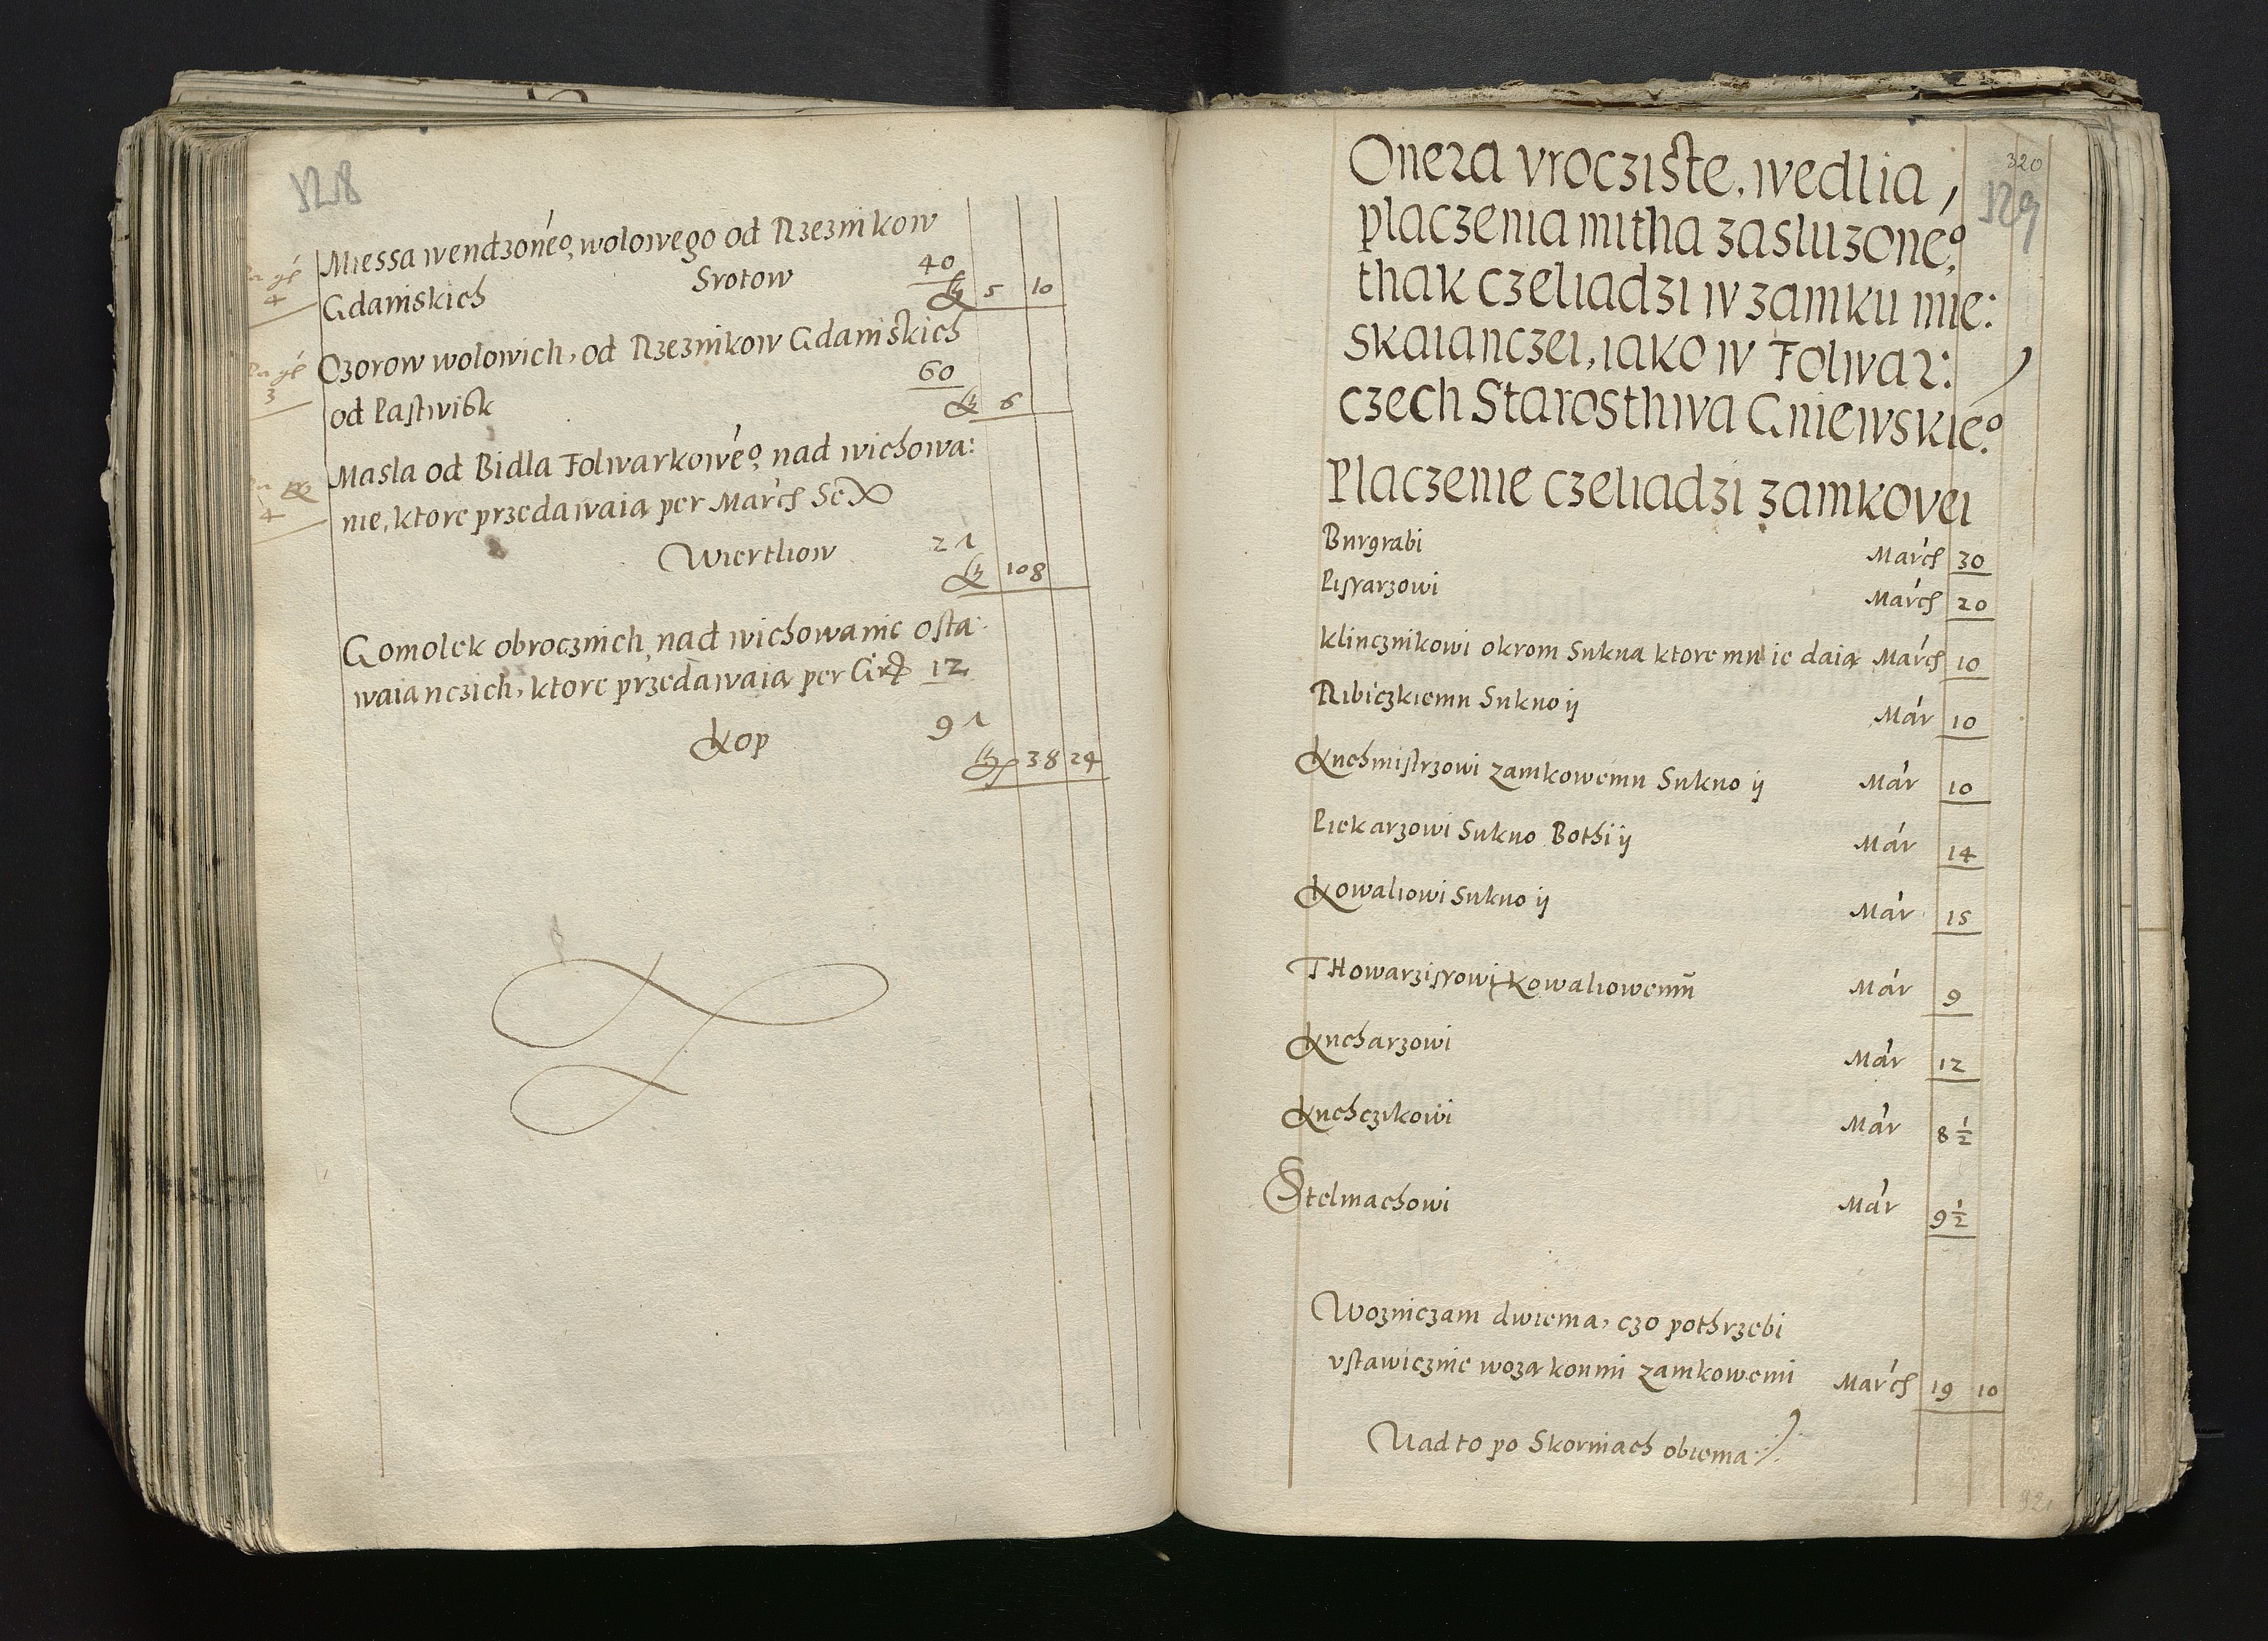 328
Miessa wendzone°, wolowego od Rzeznikow
Gdanskich Srotow 40
5 10
Ozorow wolowich, od Rzeznikow Gdanskich
od Pastwisk 60
6
Masla od Bidla Folwarkowe°, nad wichowa:
nie, ktore przedawaią per March Sex
Wiertliow 21
108
Gomolek obrocznich, nad wichowanie osta:
waianczich, ktore przedawaią per Gr 12
Kop 91
38 24
320
329
Onera vrocziste, wedlia,
placzenia mitha zasluzone°,
thak czeliadzi w zamku mie:
skaianczei, iako w Folwar:
czech Starosthwa Gniewskie°.
Placzenie czeliadzi zamkovei
Burgrabi March 30
Pissarzowi March 20
Klucznikowi okrom Sukna ktore mu ie daią March 10
Ribiczkiemu Sukno ij Mar 10
Kuchmistrzowi zamkowemu Sukno ij Mar 10
Piekarzowi Sukno Bothi ij Mar 14
Kowaliowi Sukno ij Mar 15
Thowarzissowi Kowaliowemu Mar 9
Kucharzowi Mar 12
Kuchczikowi Mar 8 ½
Stelmachowi Mar 9 ½
Wozniczam dwiema, czo pothrzebi
vstawicznie wozą konmi zamkowemi March 19 10
Nad to po Skorniach obiema